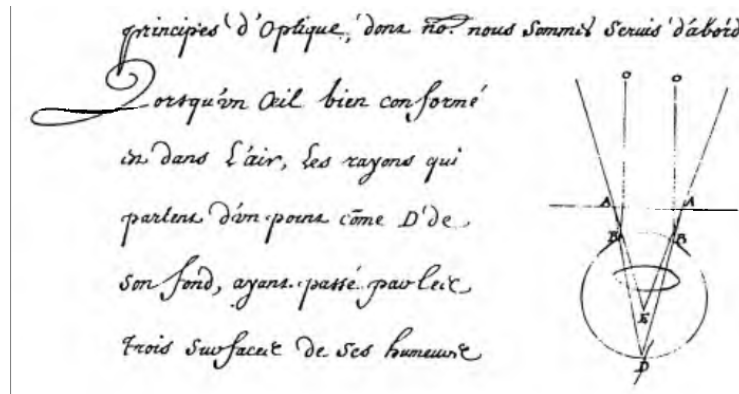 principes d'Optique, dont no. nous sommes servis d'abord
Lorsqu'un Œil bien conformé
est dans l'air, les rayons qui
partent d'un point cõme D de
son fond, ayant passé par les
trois surfaces de ses humeurs
O O
A A
B B
E
D